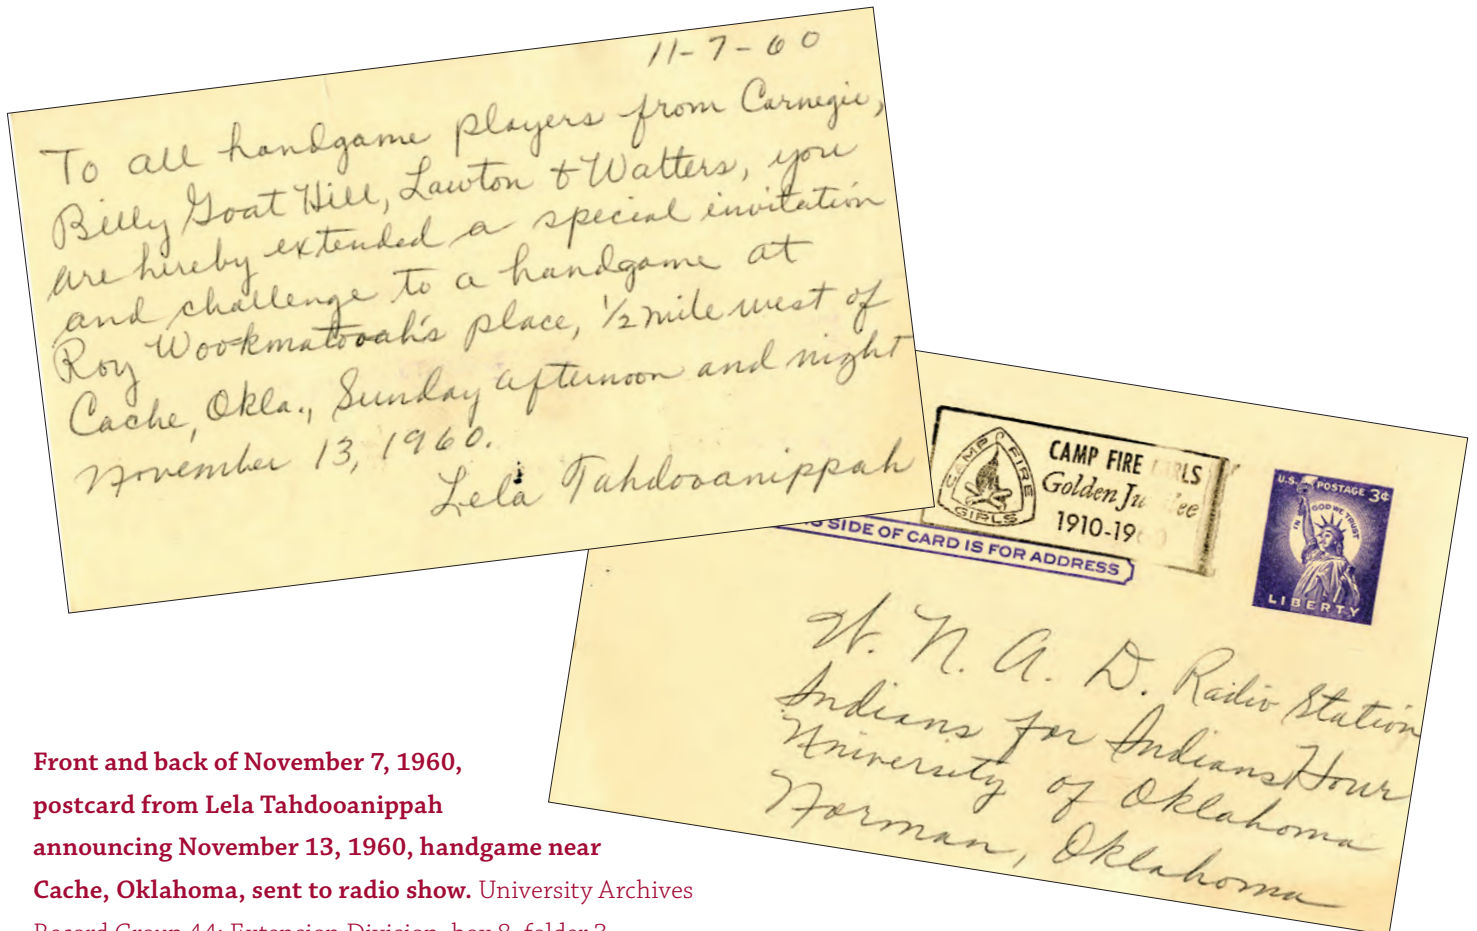 11-7-60
To all handgame players from Carnegie,
Billy Goat Hill, Lawton & Walters, you
are hereby extended a special invitation
and challenge to a handgame at
Roy Wookmatooah's place, 1/2 mile west of
Cache, Okla., Sunday afternoon and night
November 13, 1960.
Lela Tahdooanippah
CAMP FIRE GIRLS
CAMP FIRE
Golden
1910-19
U.S. POSTAGE 3¢
IN GOD WE TRUST
LIBERTY
SIDE OF CARD IS FOR ADDRESS
W. N. A. D. Radio Station
Indians for Indians Hour
University of Oklahoma
Norman, Oklahoma
Front and back of November 7, 1960,
postcard from Lela Tahdooanippah
announcing November 13, 1960, handgame near
Cache, Oklahoma, sent to radio show. University Archives
Record Group 44: Extension Division, box 8, folder 3